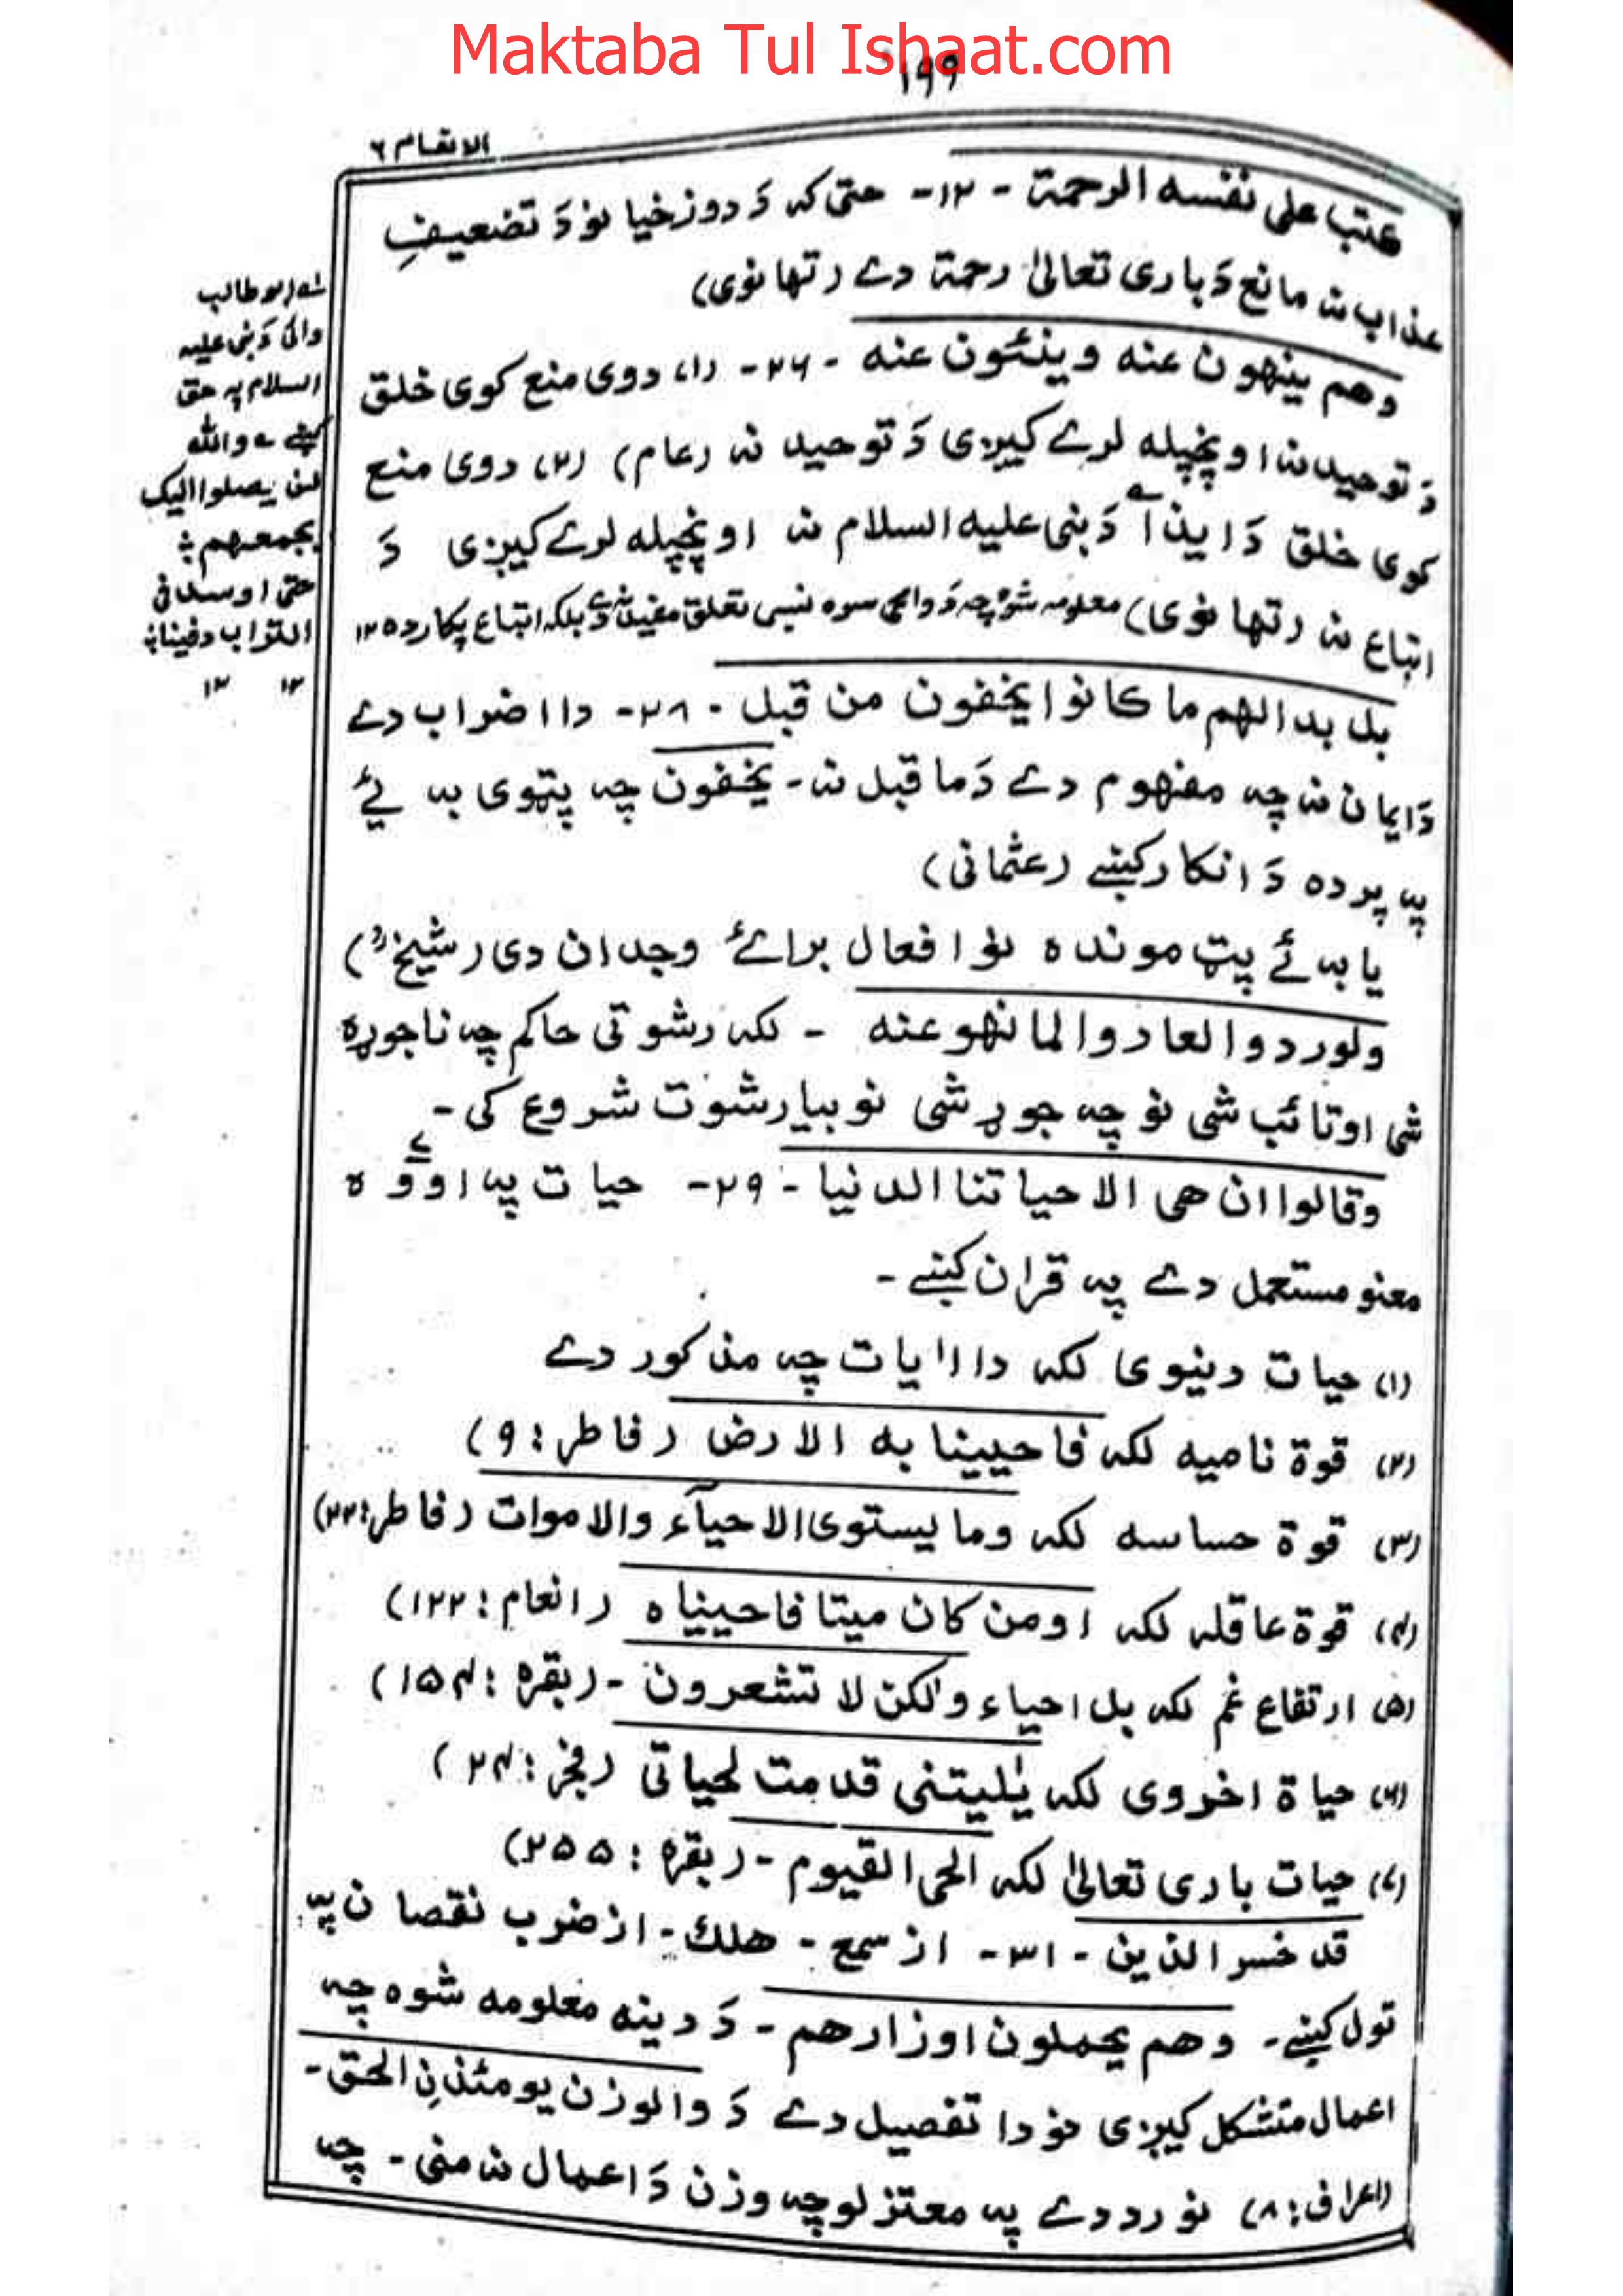 Maktaba Tul Ishaat.com
۱۹۹
الانعام ۶
کتب علی نفسه الرحمة - ۱۲- حتی که دَ دوزخیانو دَ تضعیفِ
عذاب نه مانع دَ باری تعالیٰ رحمة دے (تهانوی)
وهم ینهون عنه وینئون عنه - ۲۶- (۱) دوی منع کوی خلق
دَ توحید نه او پخپله لرے کیږی دَ توحید نه (عام) (۲) دوی منع
کوی خلق دَ ایذآ دَ نبی علیه السلام نه او پخپله لرے کیږی دَ
اتباع نه (تهانوی) معلومه شوه چه دَ سره نسبی تعلق مفید نه دے بلکه اتباع پکار ده ۱۲
بل بدالهم ما کانوا یخفون من قبل - ۲۸- دا اضراب دے
دَ ایمان نه چه مفهوم دے دَ ما قبل نه - یخفون چه پټوی به ئے
په پرده دَ انکار کښے (عثمانی)
یا به ئے پټ مونده نو افعال برائے وجدان دی (شیخؒ)
ولو ردوا لعادوا لما نهو عنه - لکه رشوتی حاکم چه ناجوړه
شی او تائب شی نو چه جوړ شی نو بیا رشوت شروع کی -
وقالوا ان هی الا حیاتنا الدنیا - ۲۹- حیات په اووه
معنو مستعمل دے په قران کښے -
(۱) حیات دنیوی لکه دا ایات چه مذکور دے
(۲) قوة نامیه لکه فاحیینا به الارض (فاطر: ۹)
(۳) قوة حساسه لکه وما یستوی الاحیآء والاموات (فاطر: ۲۲)
(۴) قوة عاقله لکه اومن کان میتا فاحییناه (انعام: ۱۲۲)
(۵) ارتفاع غم لکه بل احیاء ولکن لا تشعرون - (بقره: ۱۵۴)
(۶) حیاة اخروی لکه یٰلیتنی قدمت لحیاتی (فجر: ۲۴)
(۷) حیات باری تعالیٰ لکه الحی القیوم - (بقره: ۲۵۵)
قد خسر الذین - ۳۱- از سمع - هلك - از ضرب نقصان په
تول کښے - وهم یحملون اوزارهم - دَ دینه معلومه شوه چه
اعمال متشکل کیږی نو دا تفصیل دے دَ والوزن یومئذنِ الحق -
(اعراف: ۸) نو رد دے په معتزلو چه وزن دَ اعمال نه منی - چه
ابوطالب
دَ نبی علیه
السلام په حق
کښے ے والله
لن یصلوا الیک
بجمعهم ؛
حتی اوسد فی
التراب دفینا ؛
۱۲ ۱۲